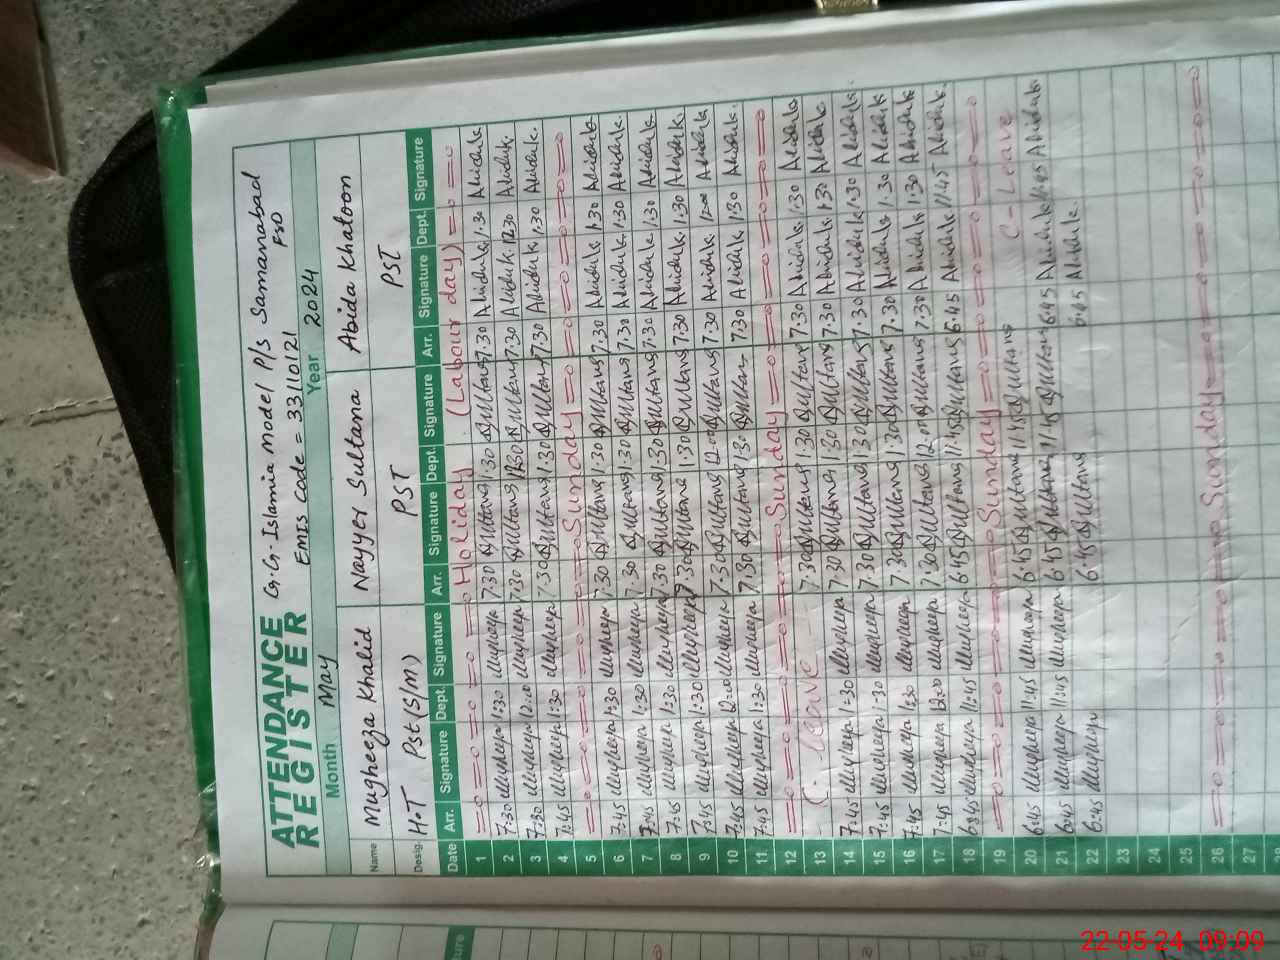 ATTENDANCE REGISTER
G.G. Islamia model P/S Samanabad FSD
EMIS Code = 33110121
Month May Year 2024
Name Mugheeza Khalid Nayyer Sultana Abida Khatoon
Desig. H.T Pst(S/M) PST PST
Date Arr. Signature Dept. Signature Arr. Signature Dept. Signature Arr. Signature Dept. Signature
1 Holiday (Labour day)
2 7:30 Mugheeza 1:30 Mugheeza 7:30 Sultana 1:30 Sultana 7:30 Abidak 1:30 Abidak
3 7:30 Mugheeza 12:00 Mugheeza 7:30 Sultana 12:30 Sultana 7:30 Abidak 12:30 Abidak
4 7:45 Mugheeza 1:30 Mugheeza 7:30 Sultana 1:30 Sultana 7:30 Abidak 1:30 Abidak
5 Sunday
6 7:45 Mugheeza 1:30 Mugheeza 7:30 Sultana 1:30 Sultana 7:30 Abidak 1:30 Abidak
7 7:45 Mugheeza 1:30 Mugheeza 7:30 Sultana 1:30 Sultana 7:30 Abidak 1:30 Abidak
8 7:45 Mugheeza 1:30 Mugheeza 7:30 Sultana 1:30 Sultana 7:30 Abidak 1:30 Abidak
9 7:45 Mugheeza 1:30 Mugheeza 7:30 Sultana 1:30 Sultana 7:30 Abidak 1:30 Abidak
10 7:45 Mugheeza 12:00 Mugheeza 7:30 Sultana 12:00 Sultana 7:30 Abidak 12:00 Abidak
11 7:45 Mugheeza 1:30 Mugheeza 7:30 Sultana 1:30 Sultana 7:30 Abidak 1:30 Abidak
12 Sunday
13 C. leave 7:30 Sultana 1:30 Sultana 7:30 Abidak 1:30 Abidak
14 7:45 Mugheeza 1:30 Mugheeza 7:30 Sultana 1:30 Sultana 7:30 Abidak 1:30 Abidak
15 7:45 Mugheeza 1:30 Mugheeza 7:30 Sultana 1:30 Sultana 7:30 Abidak 1:30 Abidak
16 7:45 Mugheeza 1:30 Mugheeza 7:30 Sultana 1:30 Sultana 7:30 Abidak 1:30 Abidak
17 7:45 Mugheeza 12:00 Mugheeza 7:30 Sultana 12:00 Sultana 7:30 Abidak 1:30 Abidak
18 6:45 Mugheeza 11:45 Mugheeza 6:45 Sultana 11:45 Sultana 6:45 Abidak 11:45 Abidak
19 Sunday
20 6:45 Mugheeza 11:45 Mugheeza 6:45 Sultana 11:45 Sultana C-Leave
21 6:45 Mugheeza 11:45 Mugheeza 6:45 Sultana 11:45 Sultana 6:45 Abidak 11:45 Abidak
22 6:45 Mugheeza 6:45 Sultana 6:45 Abidak
23
24
25
26 Sunday
27
22-05-24 09:09